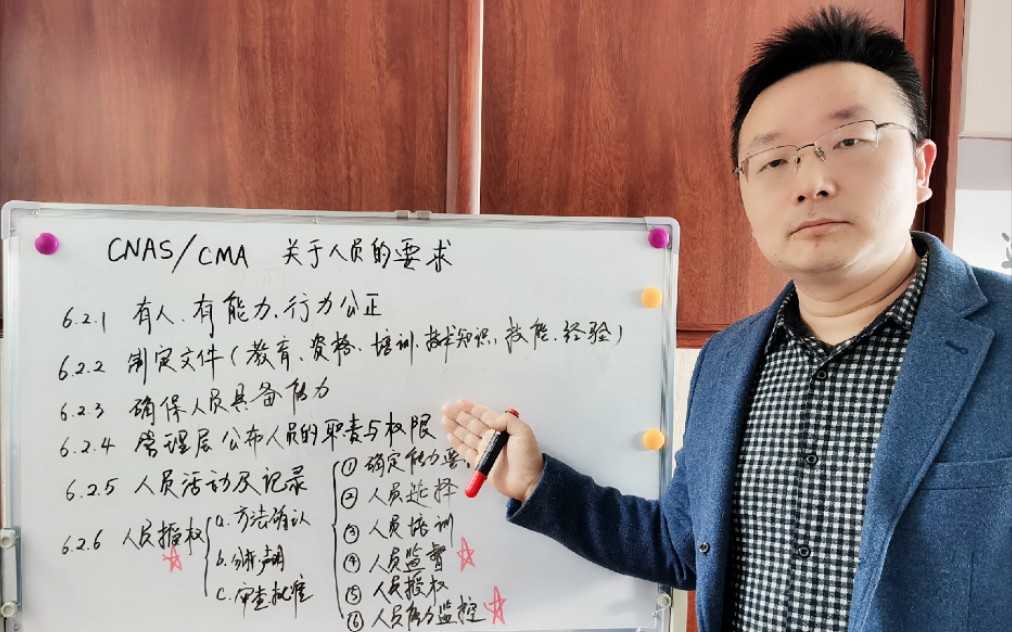 CNAS/CMA 关于人员的要求
6.2.1 有人、有能力、行为公正
6.2.2 制定文件(教育、资格、培训、技术知识、技能、经验)
6.2.3 确保人员具备能力
6.2.4 管理层公布人员的职责与权限
6.2.5 人员活动及记录
① 确定能力要
② 人员选择
③ 人员培训
④ 人员监督
⑤ 人员授权
⑥ 人员能力监控
6.2.6 人员授权
a. 方法确认
b. 分析声明
c. 审查批准